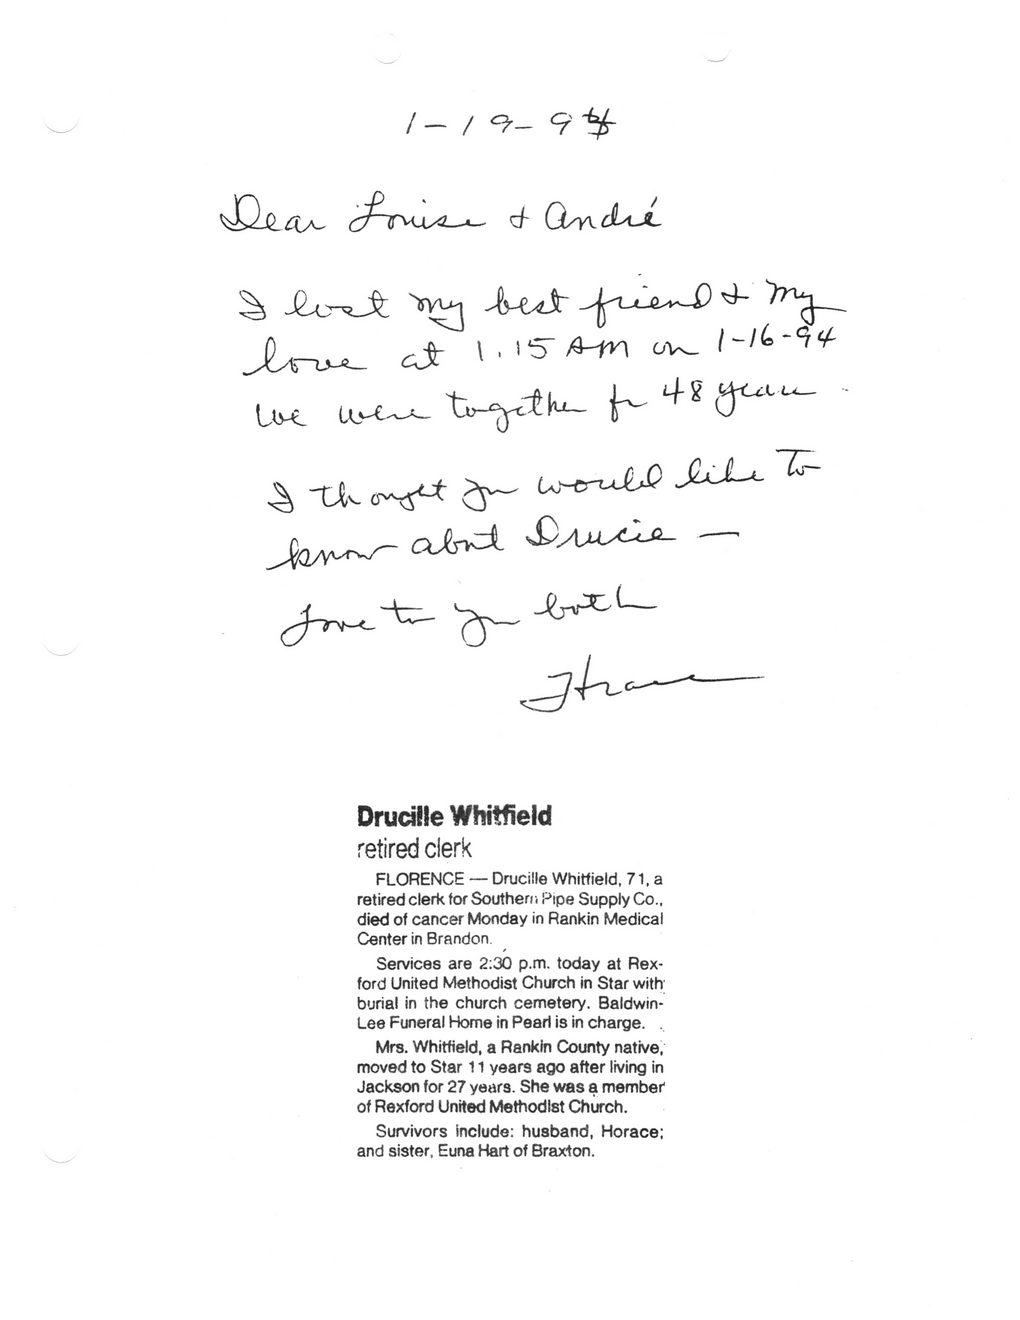 1-19-94
Dear Louise & André
I lost my best friend & my
love at 1.15 AM on 1-16-94
We were together for 48 years
I thought you would like to
know about Drucie —
Love to you both
Horace
Drucille Whitfield
retired clerk
FLORENCE — Drucille Whitfield, 71, a
retired clerk for Southern Pipe Supply Co.,
died of cancer Monday in Rankin Medical
Center in Brandon.
Services are 2:30 p.m. today at Rex-
ford United Methodist Church in Star with
burial in the church cemetery. Baldwin-
Lee Funeral Home in Pearl is in charge.
Mrs. Whitfield, a Rankin County native,
moved to Star 11 years ago after living in
Jackson for 27 years. She was a member
of Rexford United Methodist Church.
Survivors include: husband, Horace;
and sister, Euna Hart of Braxton.